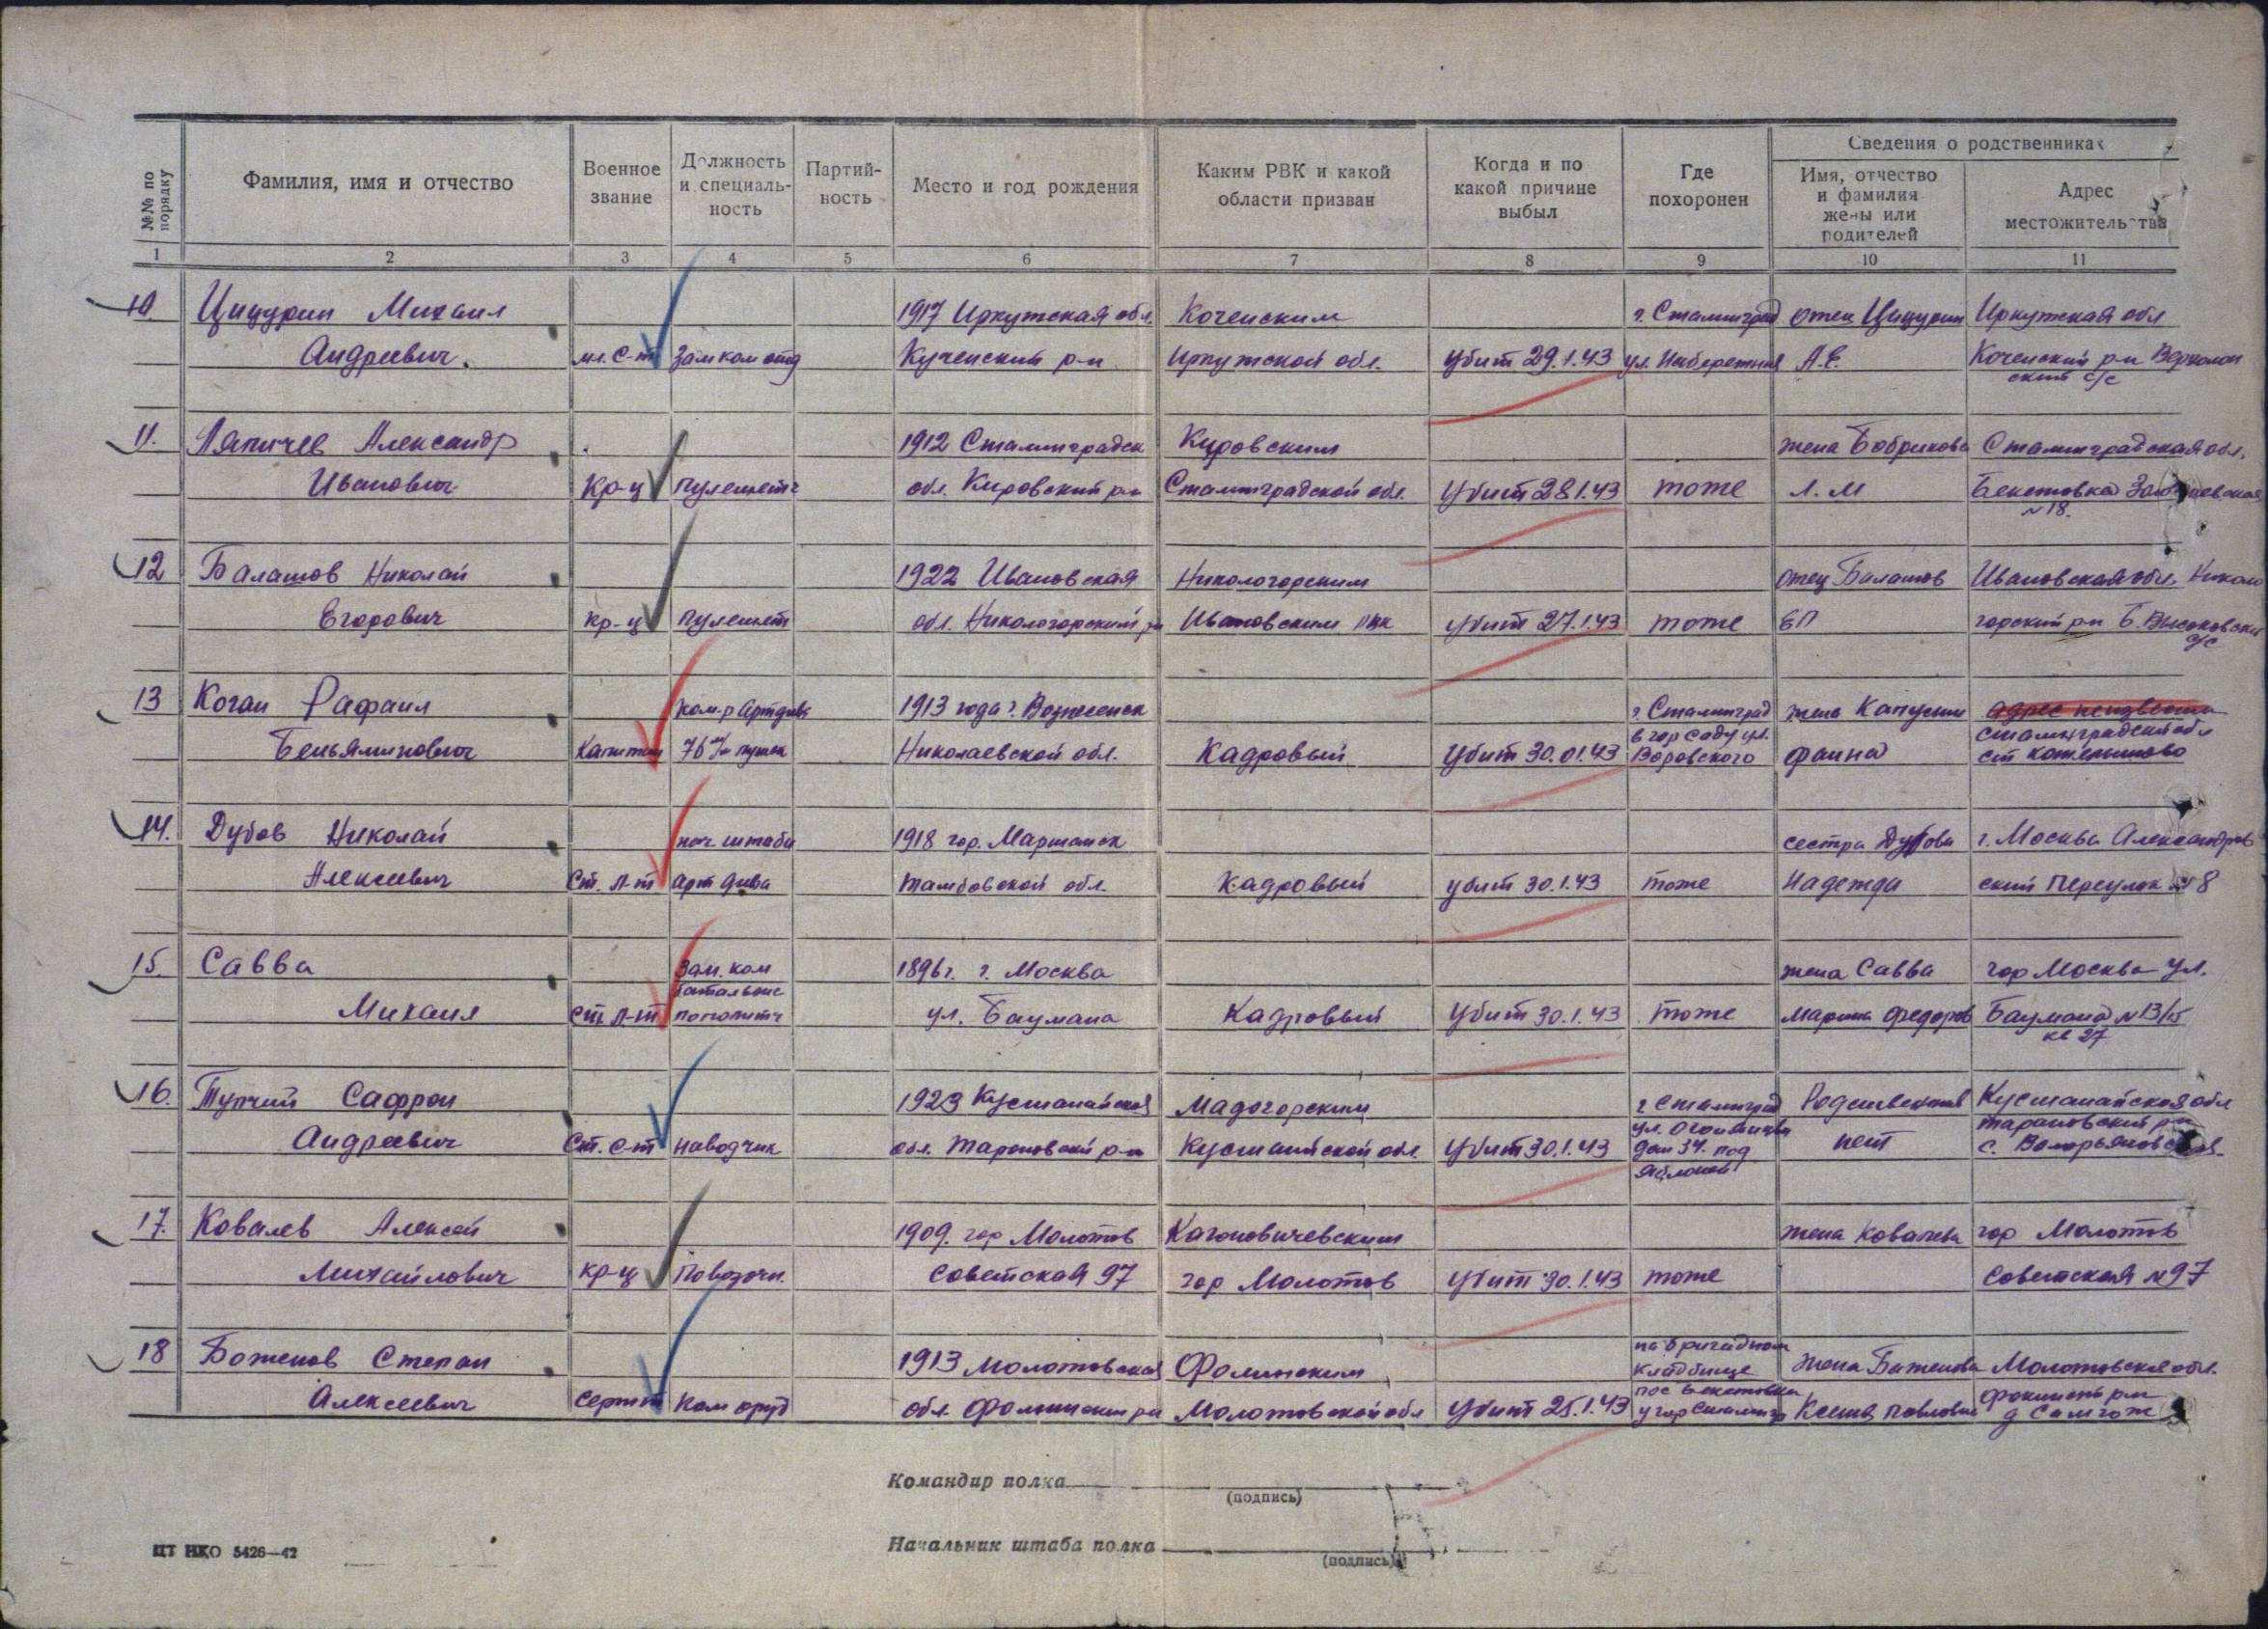 №№ по порядку
Фамилия, имя и отчество
Военное звание
Должность и специаль-ность
Партий-ность
Место и год рождения
Каким РВК и какой области призван
Когда и по какой причине выбыл
Где похоронен
Сведения о родственниках
Имя, отчество и фамилия жены или родителей
Адрес местожительства
1 2 3 4 5 6 7 8 9 10 11
10. Цицурин Михаил 1917 Иркутская обл. Коченским г. Сталинград отец Цицурин Иркутская обл
Андреевич. мл. с-т Замкомотд Кученский р-н Иркутской обл. Убит 29.1.43 ул. Набережная А.Е. Коченский р-н
ский с/с
11. Ляпичев Александр 1912 Сталинградск Кировским жена Бобрикова Сталинградская обл.
Иванович Кр-ц пулеметч обл. Кировский р-н Сталинградской обл. Убит 28.1.43 тоже Л.М Бекетовка
№ 18.
12 Балашов Николай 1922 Ивановская Никологорским отец Балашов Ивановская обл. Николо
Егорович кр-ц пулемет обл. Никологорский рн Ивановским Убит 27.1.43 тоже ЕП горский рн Б. Высоковский
с/с
13 Коган Рафаил ком-р Артдив 1913 года г. Вознесенск г. Сталинград жена Капусти адрес неизвестен
в гор саду ул. Сталинградской обл
Беньяминович Капитан 76 м/м пушек Николаевской обл. Кадровый Убит 30.01.43 Воровского фаина ст котельниково
14. Дубов Николай нач штаба 1918 гор. Маршанск сестра Дубова г. Москва Александров
Алексеевич Ст. л-т арт дива Тамбовской обл. Кадровый убит 30.1.43 тоже Надежда ский Переулок № 8
15. Савва Зам. ком 1896 г. г. Москва жена Савва гор Москва ул.
батальона
Михаил Ст. л-т по политч ул. Баумана Кадровый Убит 30.1.43 тоже Марина Федоров Баумана № 13/15
кв 27
16. Тупчий Сафрон 1923 Кустанайская Мадогорским г Сталинград Родственников Кустанайская обл
Тарановский рн
Андреевич Ст. с-т наводчик обл. Тарановский р-н Кустанайской обл. Убит 30.1.43 дом 34. под нет с.
яблоней
17. Ковалев Алексей 1909. гор Молотов Кагановичевским жена Ковалева гор Молотов
Михайлович кр-ц Повозочн. Советская 97 гор Молотов Убит 30.1.43 тоже Советская № 97
на бригадном
18 Боженов Степан 1913 Молотовская Фокинским кладбище жена Баженова Молотовская обл.
пос Бекетовка Фокинский рн
Алексеевич Сержант Ком оруд обл. Фокинский рн Молотовской обл Убит 25.1.43 у гор Сталингр Ксения Павловна
Командир полка
(подпись)
Начальник штаба полка
(подпись)
ЦТ НКО 5426—42